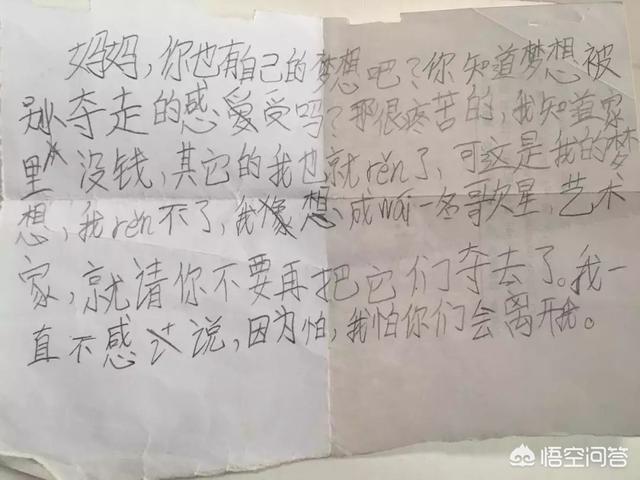 妈妈，你也有自己的梦想吧？你知道梦想被
别人夺走的感爱受吗？那很疼苦的，我知道家
里没钱，其它的我也就rěn了，可这是我的梦
想，我rěn不了，我像想成wéi一名歌星，艺术
家，就请你不要再把它们夺去了。我一
直不感说，因为怕，我怕你们会离开我。
悟空问答